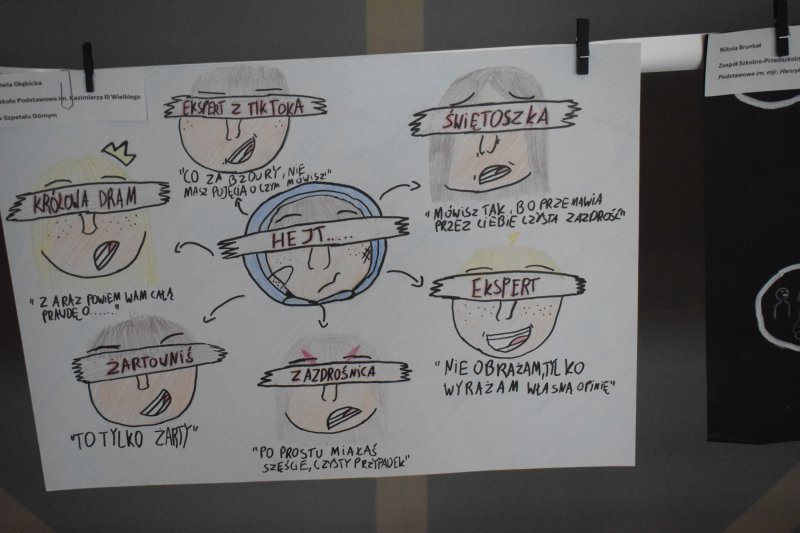 Głąbicka
Szkoła Podstawowa im. Kazimierza III Wielkiego
w Szpetalu Górnym
Nikola Brunkał
Zespół Szkolno-Przedszkolny
Podstawowa im. mjr. Henryka
EKSPERT Z TIKTOKA
"CO ZA BZDURY, NIE
MASZ POJĘCIA O CZYM MÓWISZ!"
ŚWIĘTOSZKA
"MÓWISZ TAK, BO PRZEMAWIA
PRZEZ CIEBIE CZYSTA ZAZDROŚĆ"
KRÓLOWA DRAM
"ZARAZ POWIEM WAM CAŁĄ
PRAWDĘ O......"
HEJT.....
EKSPERT
"NIE OBRAŻAM, TYLKO
WYRAŻAM WŁASNĄ OPINIĘ"
ŻARTOWNIŚ
"TO TYLKO ŻARTY"
ZAZDROŚNICA
"PO PROSTU MIAŁAŚ
SZĘŚCIE, CZYSTY PRZYPADEK"